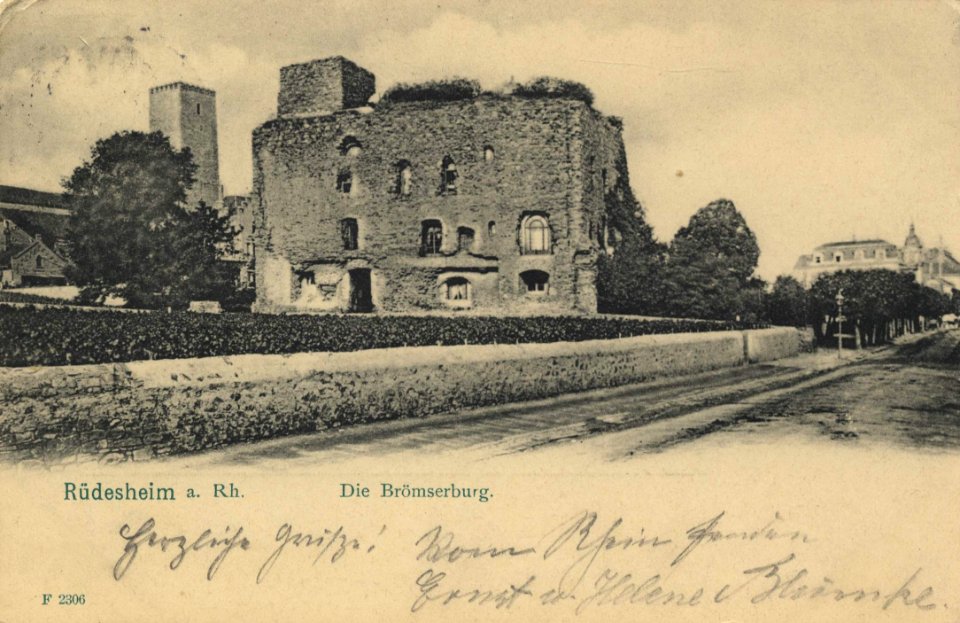 Rüdesheim a. Rh. Die Brömserburg.
Herzliche Grüße! Vom Rhein senden
Ernst u. Helene Blümke.
F 2306